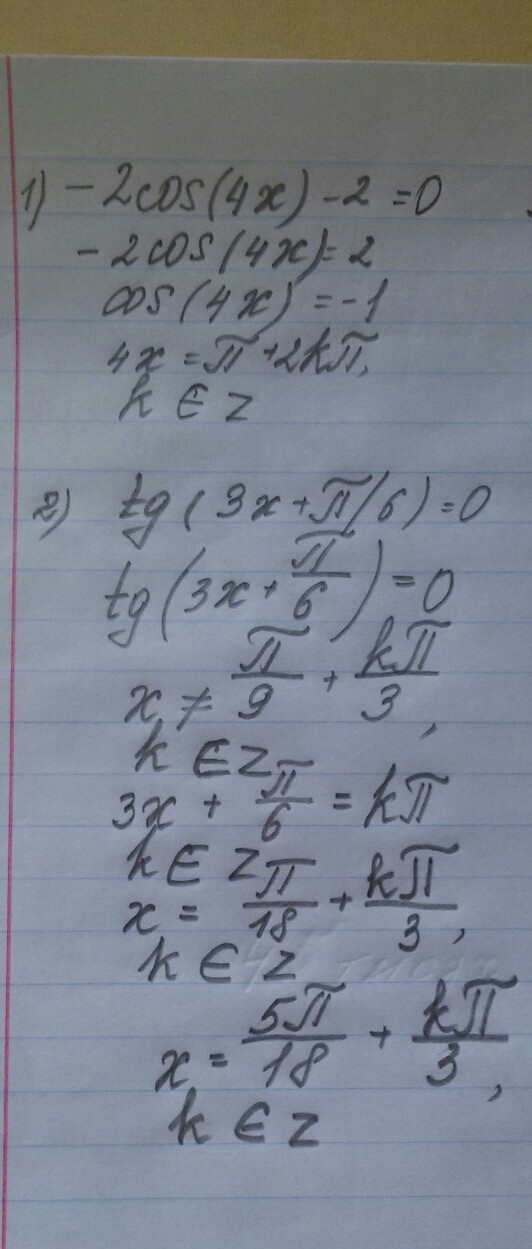 1) -2cos(4x) -2 =0
-2cos(4x)=2
cos(4x) =-1
4x =π+2kπ,
k ∈ z
2) tg( 3x+π/6)=0
tg(3x+π/6)=0
x ≠ π/9 + kπ/3,
k ∈ z
3x + π/6 = kπ
k ∈ z
x = π/18 + kπ/3,
k ∈ z
x = 5π/18 + kπ/3,
k ∈ z